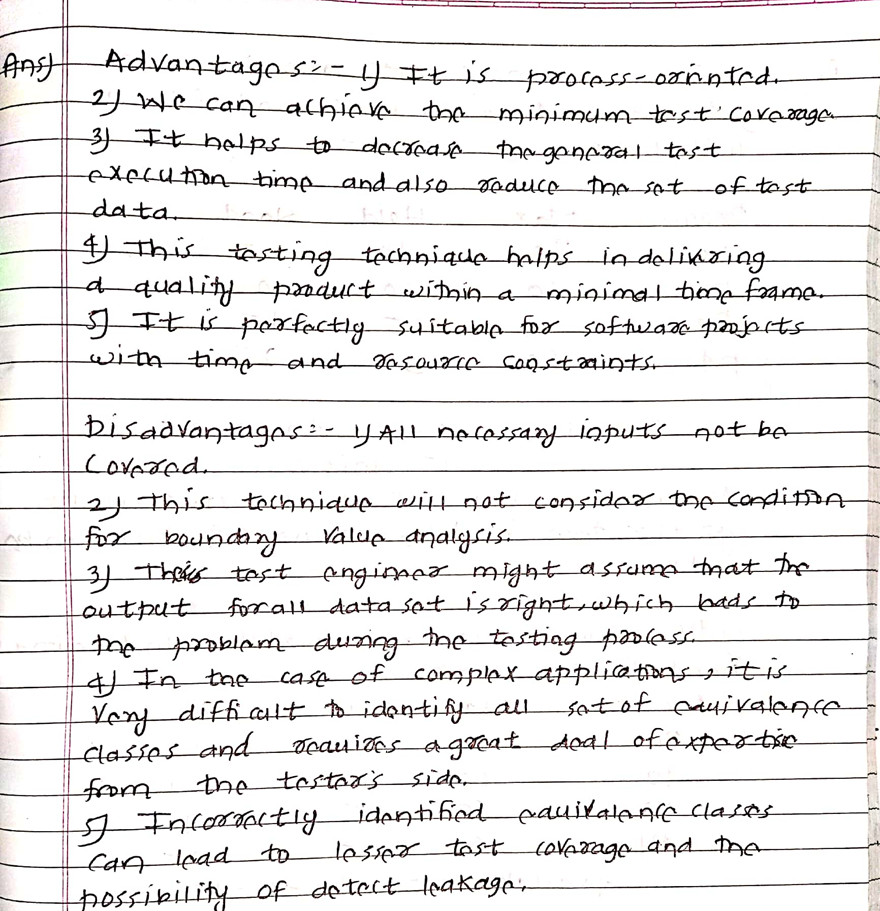 Ans) Advantages:- 1) It is process-oriented.
2) We can achieve the minimum test coverage
3) It helps to decrease the general test
execution time and also reduce the set of test
data.
4) This testing technique helps in delivering
a quality product within a minimal time frame.
5) It is perfectly suitable for software projects
with time and resource constraints.
Disadvantages:- 1) All necessary inputs not be
Covered.
2) This technique will not consider the condition
for boundary value analysis.
3) The test engineer might assume that the
output for all data set is right, which leads to
the problem during the testing process.
4) In the case of complex applications, it is
very difficult to identify all set of equivalence
classes and requires a great deal of expertise
from the tester's side.
5) Incorrectly identified equivalence classes
can lead to lesser test coverage and the
possibility of detect leakage.